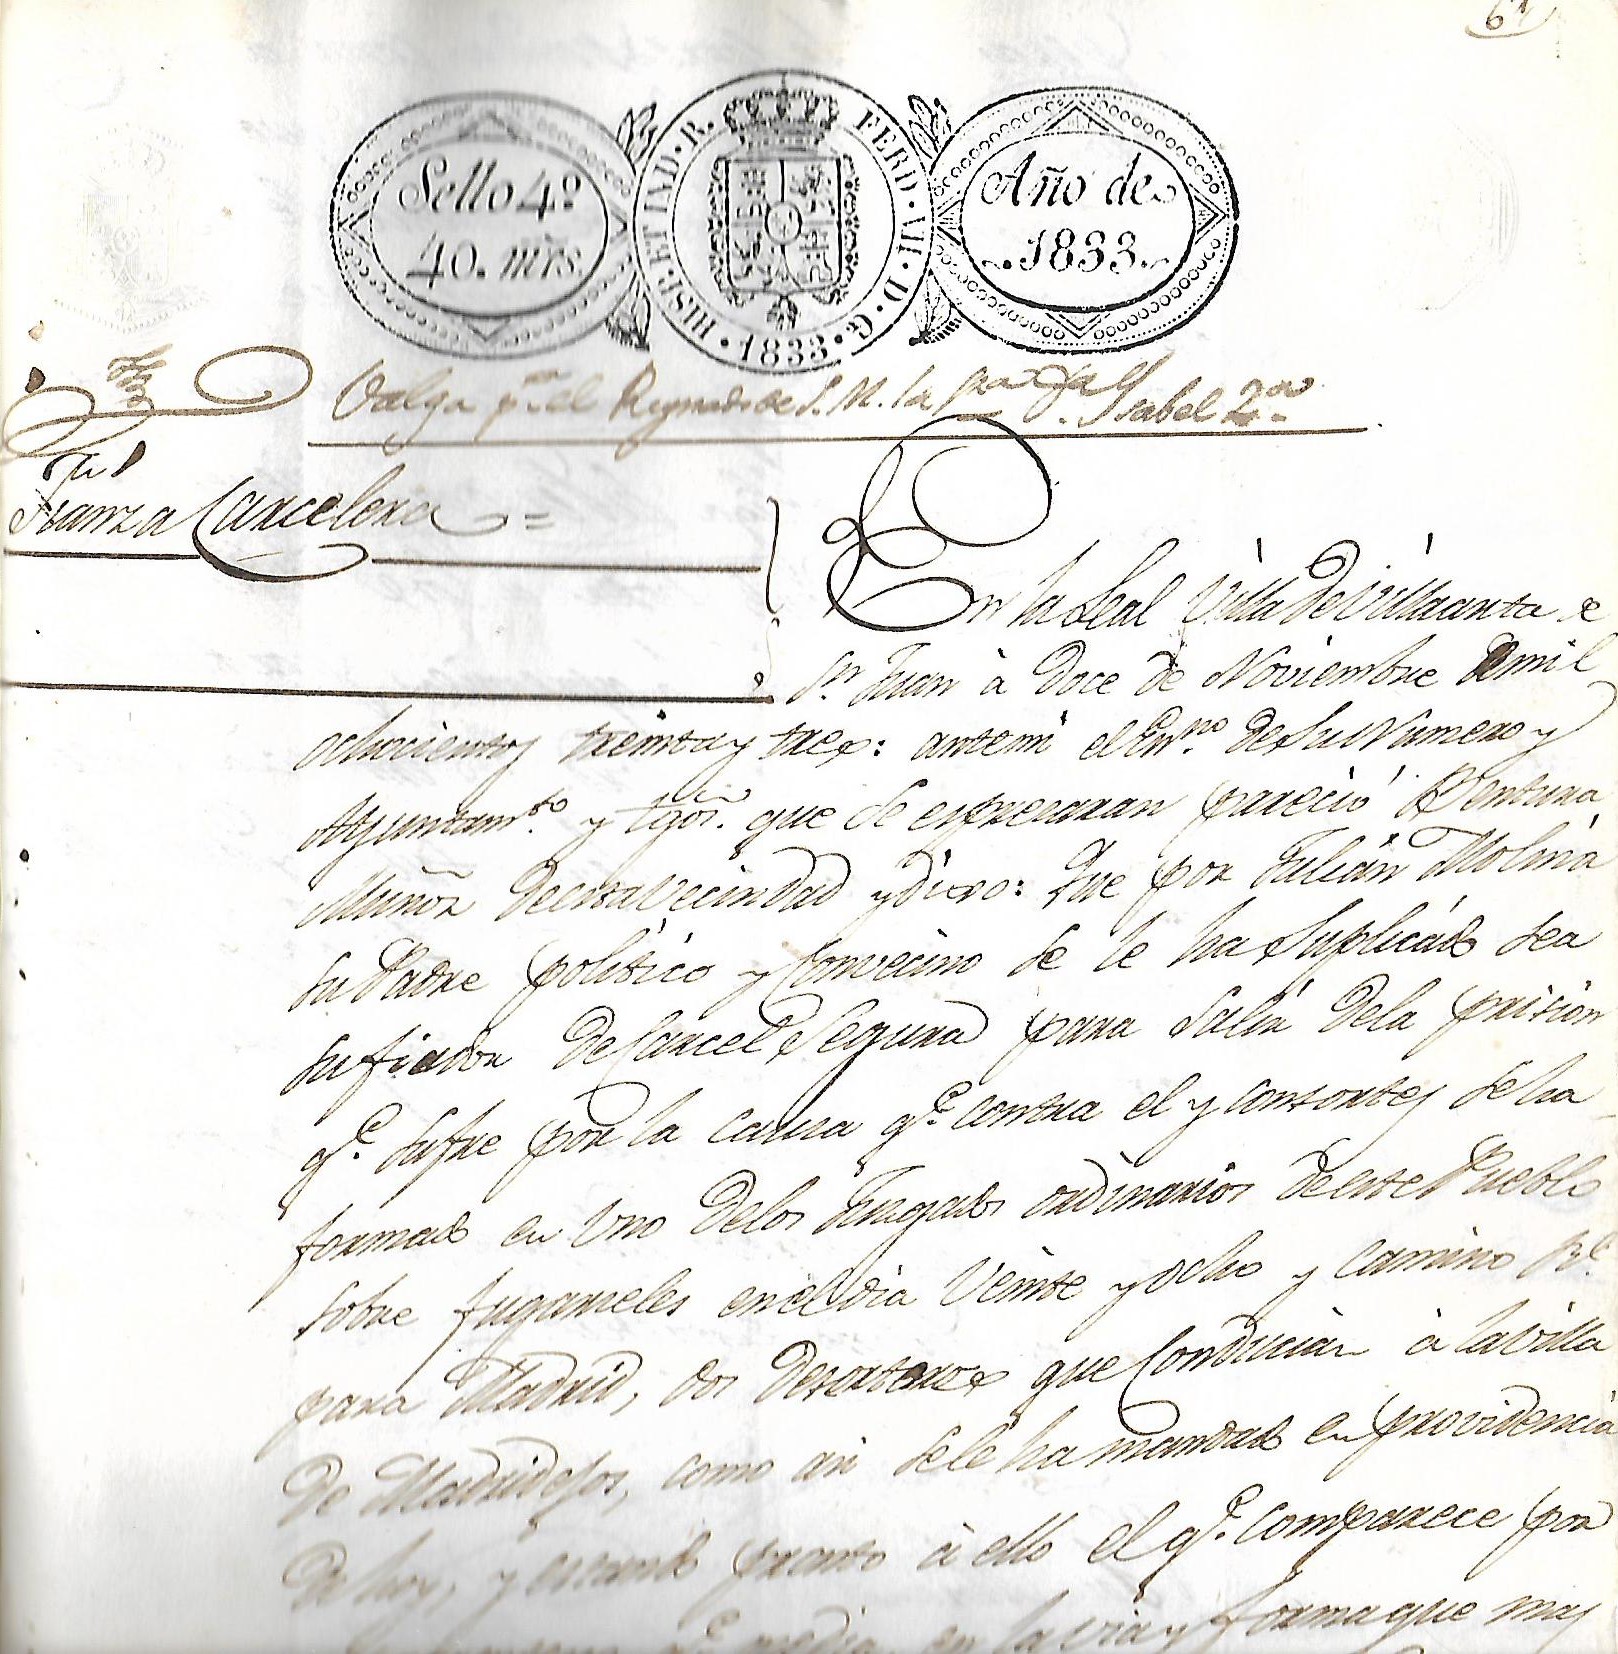 61
Sello 4º
40. mrs.
HISP. ET IND. R. FERD. VII. D. G. 1833.
Año de
1833
Valga pr. el Reynado de S. M. la Sra. Da. Ysabel 2ª
Fianza Carcelera =
En la Leal Villa de Villacanta de
Sn. Juan à doce de Noviembre de mil
ochocientos treinta y tres: ante mi el Esno. de su Numero y
Ayuntamto. y tgos. que se expresaran pareció Bentura
Muñoz de esta vecindad y dixo: Que por Julián Molina
su Padre politico y convecino se le ha suplicado sea
su fiador de Carcel Segura para salir de la prision
qe. sufre por la causa qe. contra el y consortes se ha
formado en uno de los Juzgados ordinarios de este Pueblo
sobre fugarseles en el dia veinte y ocho y camino Rl.
para Madrid, dos desertores que conducian à la villa
de Madridejos, como asi se le ha mandado en providencia
de hoy, y estando pronto à ello el qe. comparece por
en la via y forma que mas